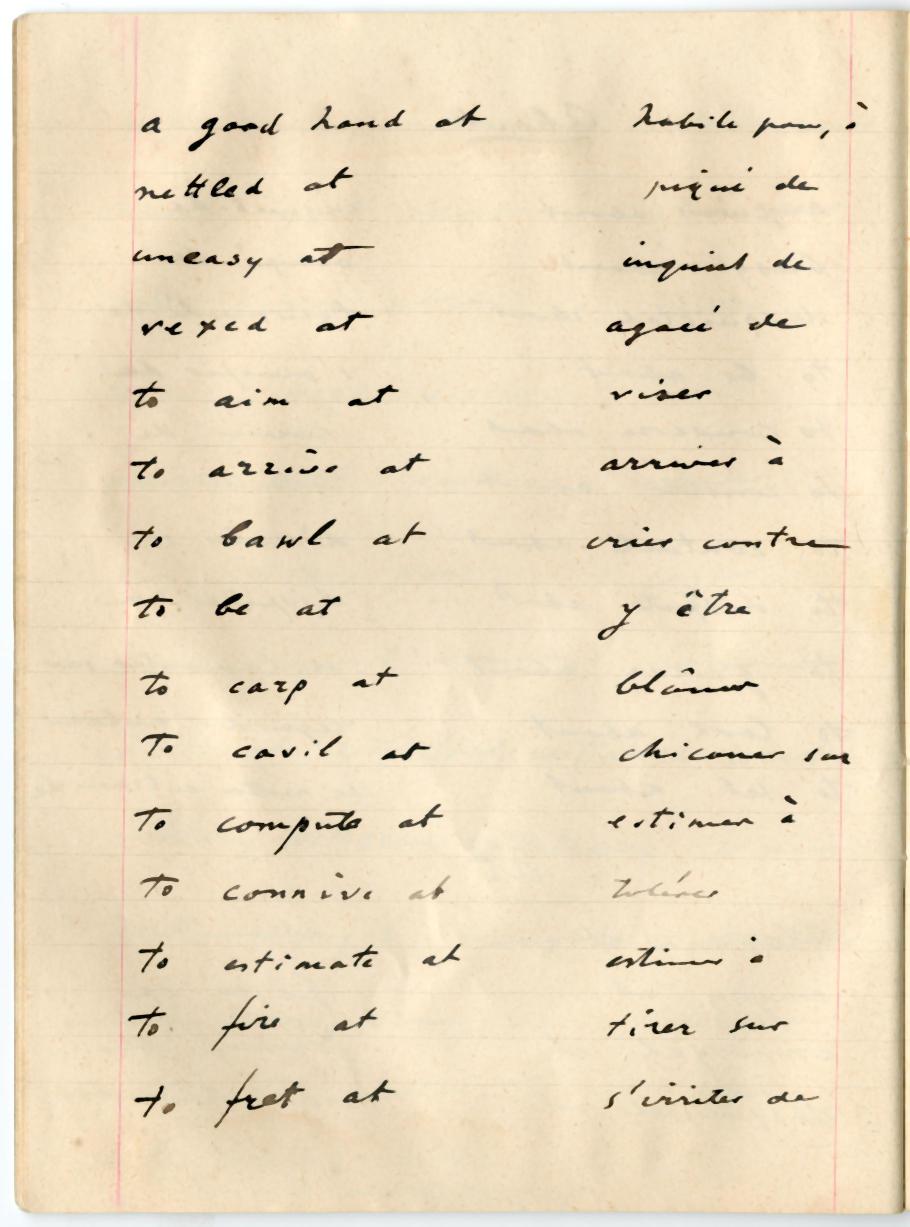 a good hand at habile pour, à
nettled at piqué de
uneasy at inquiet de
vexed at agacé de
to aim at viser
to arrive at arriver à
to bawl at crier contre
to be at y être
to carp at blâmer
To cavil at chicaner sur
To compute at estimer à
To connive at tolérer
To estimate at estimer à
To fire at tirer sur
to fret at s'irriter de